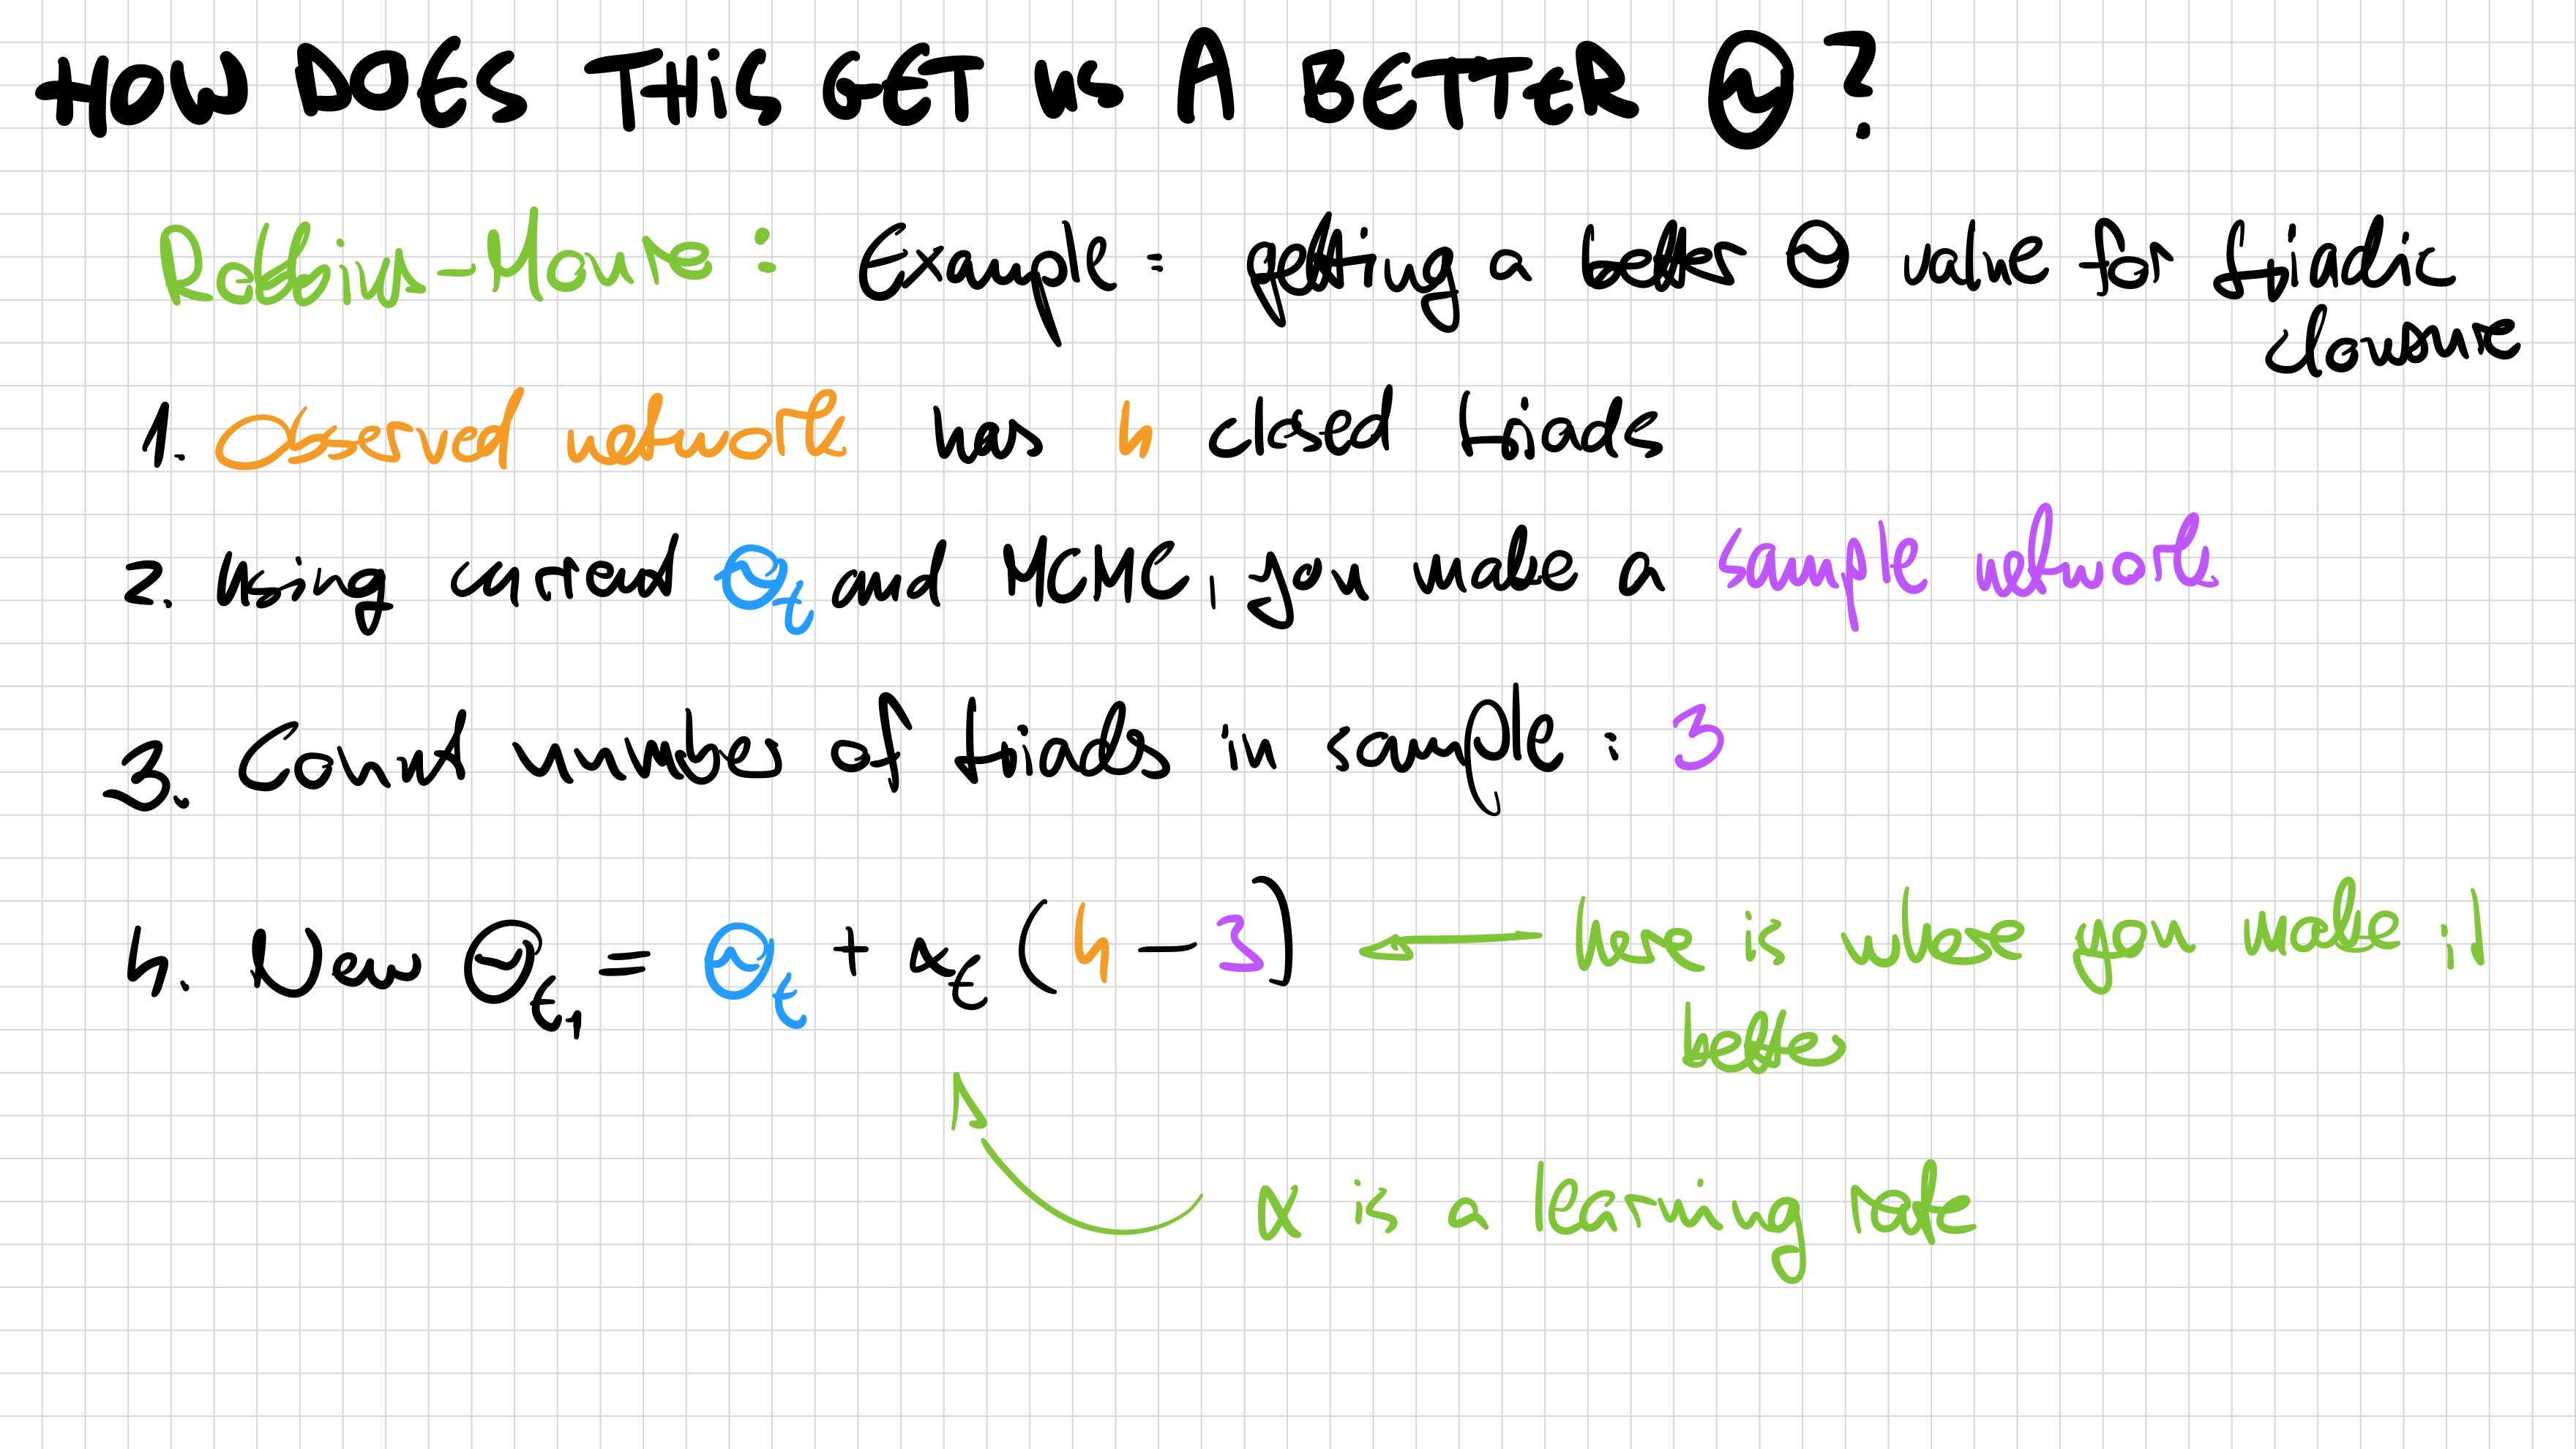 HOW DOES THIS GET US A BETTER Θ?
Robbins-Monre: Example: getting a better Θ value for triadic
clousure
1. Observed network has 4 closed triads
2. Using current Θt and MCMC, you make a sample network
3. Count number of triads in sample: 3
4. New Θt+1 = Θt + αt (4-3) ← here is where you make it
better
α is a learning rate